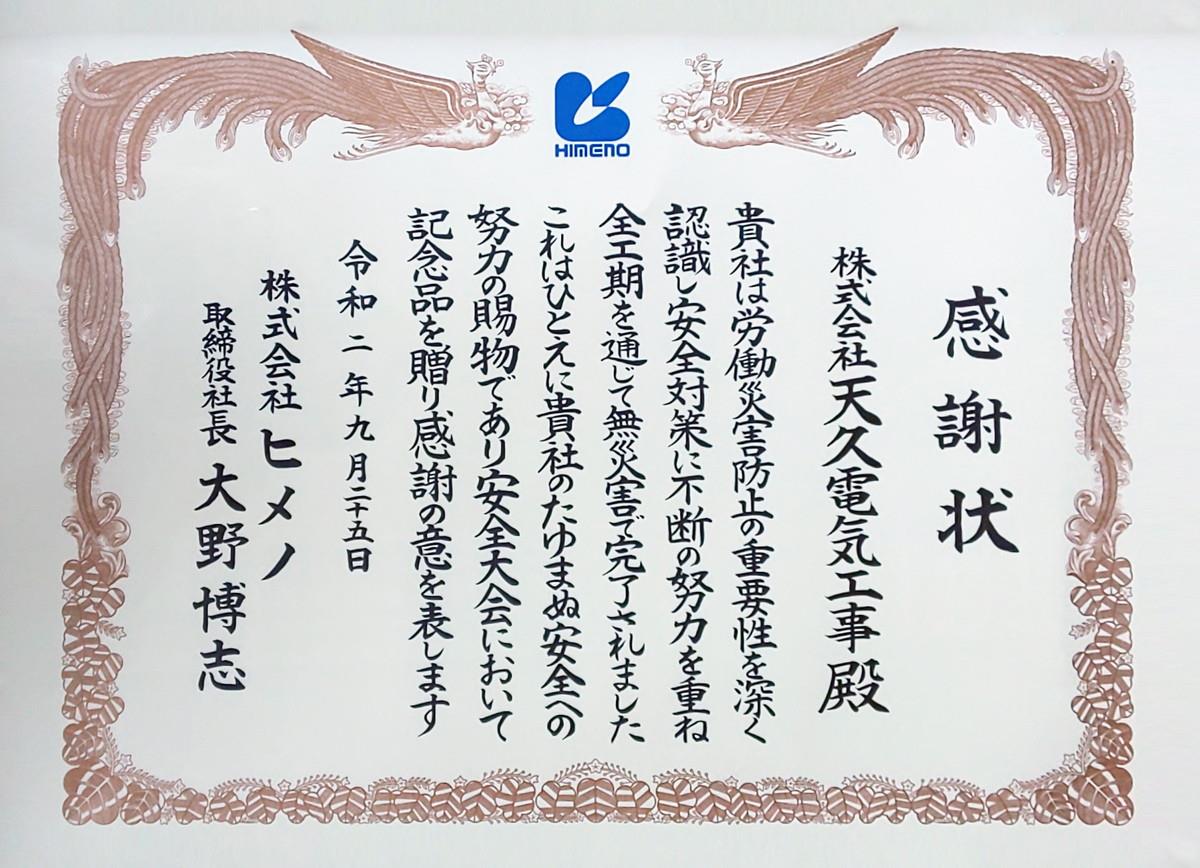 HIMENO
感謝状
株式会社天久電気工事殿
貴社は労働災害防止の重要性を深く
認識し安全対策に不断の努力を重ね
全工期を通じて無災害で完了されました
これはひとえに貴社のたゆまぬ安全への
努力の賜物であり安全大会において
記念品を贈り感謝の意を表します
令和二年九月二十五日
株式会社ヒメノ
取締役社長 大野博志